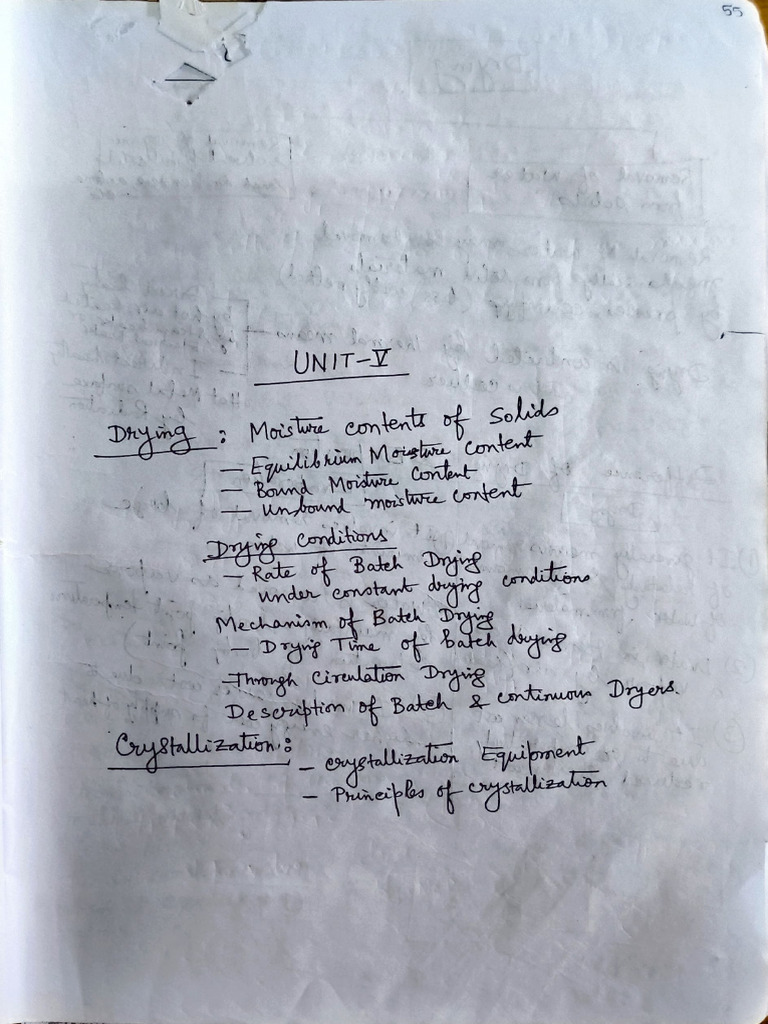 55
UNIT-V
Drying : Moisture contents of Solids
— Equilibrium Moisture Content
— Bound Moisture Content
— Unbound moisture content
Drying Conditions
— Rate of Batch Drying
under constant drying conditions
Mechanism of Batch Drying
— Drying Time of batch drying
— Through Circulation Drying
Description of Batch & continuous Dryers.
Crystallization :
— crystallization Equipment
— Principles of crystallization